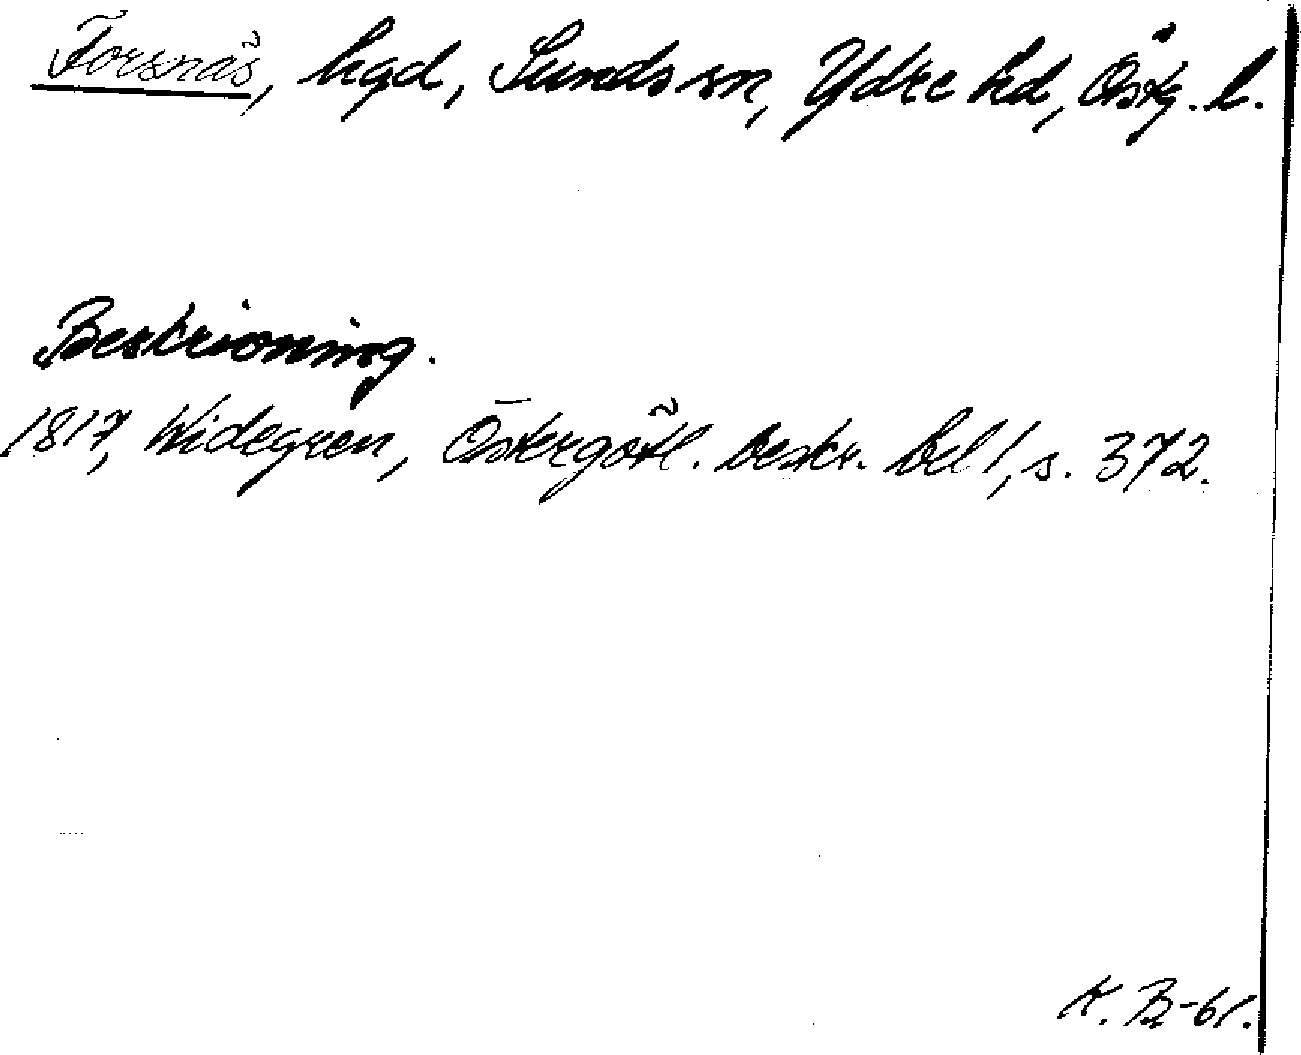 Forsnäs, hgd, Sunds sn, Ydre hd, Östg. l.
Beskrivning.
1817, Widegren, Östergötl. beskr. Del 1, s. 372.
K. B-61.